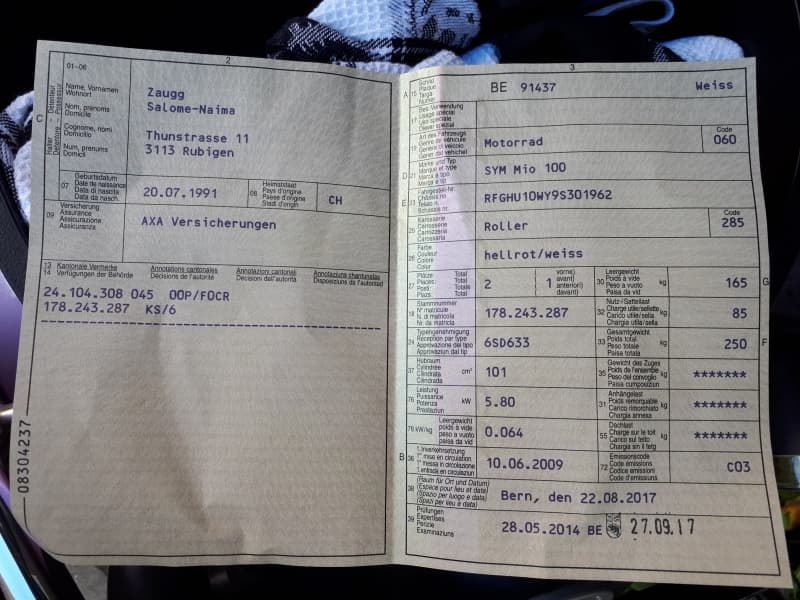 2
01-06
Name, Vornamen
Wohnort
Nom, prénoms
Domicile
Cognome, nomi
Domicilio
Num, prenums
Domicil
C
Zaugg
Salome-Naima
Thunstrasse 11
3113 Rubigen
07
Geburtsdatum
Date de naissance
Data di nascita
Data da nasch.
20.07.1991
08
Heimatstaat
Pays d'origine
Paese d'origine
Stadi d'origin
CH
09
Versicherung
Assurance
Assicurazione
Assicuranza
AXA Versicherungen
13
14
Kantonale Vermerke
Verfügungen der Behörde
Annotations cantonales
Décisions de l'autorité
Annotazioni cantonali
Decisioni dell'autorità
Annotaziuns chantunalas
Disposiziuns da l'autoritad
24.104.308 045 OOP/FOCR
178.243.287 KS/6
08304237
3
A 15
Schild
Plaque
Targa
Numer
BE 91437 Weiss
17
Bes. Verwendung
Usage spécial
Uso speciale
Diever spezial
19
Art des Fahrzeugs
Genre de véhicule
Genere di veicolo
Gener dal vehichel
Motorrad
Code
060
D 21
Marke und Typ
Marque et type
Marca e tipo
Marca e tip
SYM Mio 100
E 23
Fahrgestell-Nr.
Châssis no
Telaio n.
Schassis nr.
RFGHU10WY9S301962
25
Karosserie
Carrosserie
Carrozzeria
Carossaria
Roller
Code
285
26
Farbe
Couleur
Colore
Colur
hellrot/weiss
27
Plätze Total
Places: Total
Posti: Totale
Plazs Total
2
1
vorne)
avant)
anteriori)
davant)
30
Leergewicht
Poids à vide
Peso a vuoto
Paisa da vid
kg
165
G
18
Stammnummer
N° matricule
N. di matricola
Nr. da matricla
178.243.287
32
Nutz-/Sattellast
Charge utile/sellette
Carico utile/sella
Chargia utila/sella
kg
85
24
Typengenehmigung
Réception par type
Approvazione del tipo
Approvaziun dal tip
6SD633
33
Gesamtgewicht
Poids total
Peso totale
Paisa totala
kg
250
F
37
Hubraum
Cylindrée
Cilindrata
Cilindrada
cm³
101
35
Gewicht des Zuges
Poids de l'ensemble
Peso del convoglio
Paisa cumposiziun
kg
*******
76
Leistung
Puissance
Potenza
Prestaziun
kW
5.80
31
Anhängelast
Poids remorquable
Carico rimorchiato
Chargia annexa
kg
*******
78 kW/kg
Leergewicht
poids à vide
peso a vuoto
paisa da vid
0.064
55
Dachlast
Charge sur le toit
Carico sul tetto
Chargia sin il tetg
kg
*******
B 36
1. Inverkehrsetzung
1re mise en circulation
1a messa in circolazione
1. entrada en circulaziun
10.06.2009
72
Emissionscode
Code émissions
Codice emissioni
Code d'emissiuns
C03
38
(Raum für Ort und Datum)
(Espace pour lieu et date)
(Spazio per luogo e data)
(Spazi per lieu e data)
Bern, den 22.08.2017
39
Prüfungen
Expertises
Perizie
Examinaziuns
28.05.2014 BE 27.09.17